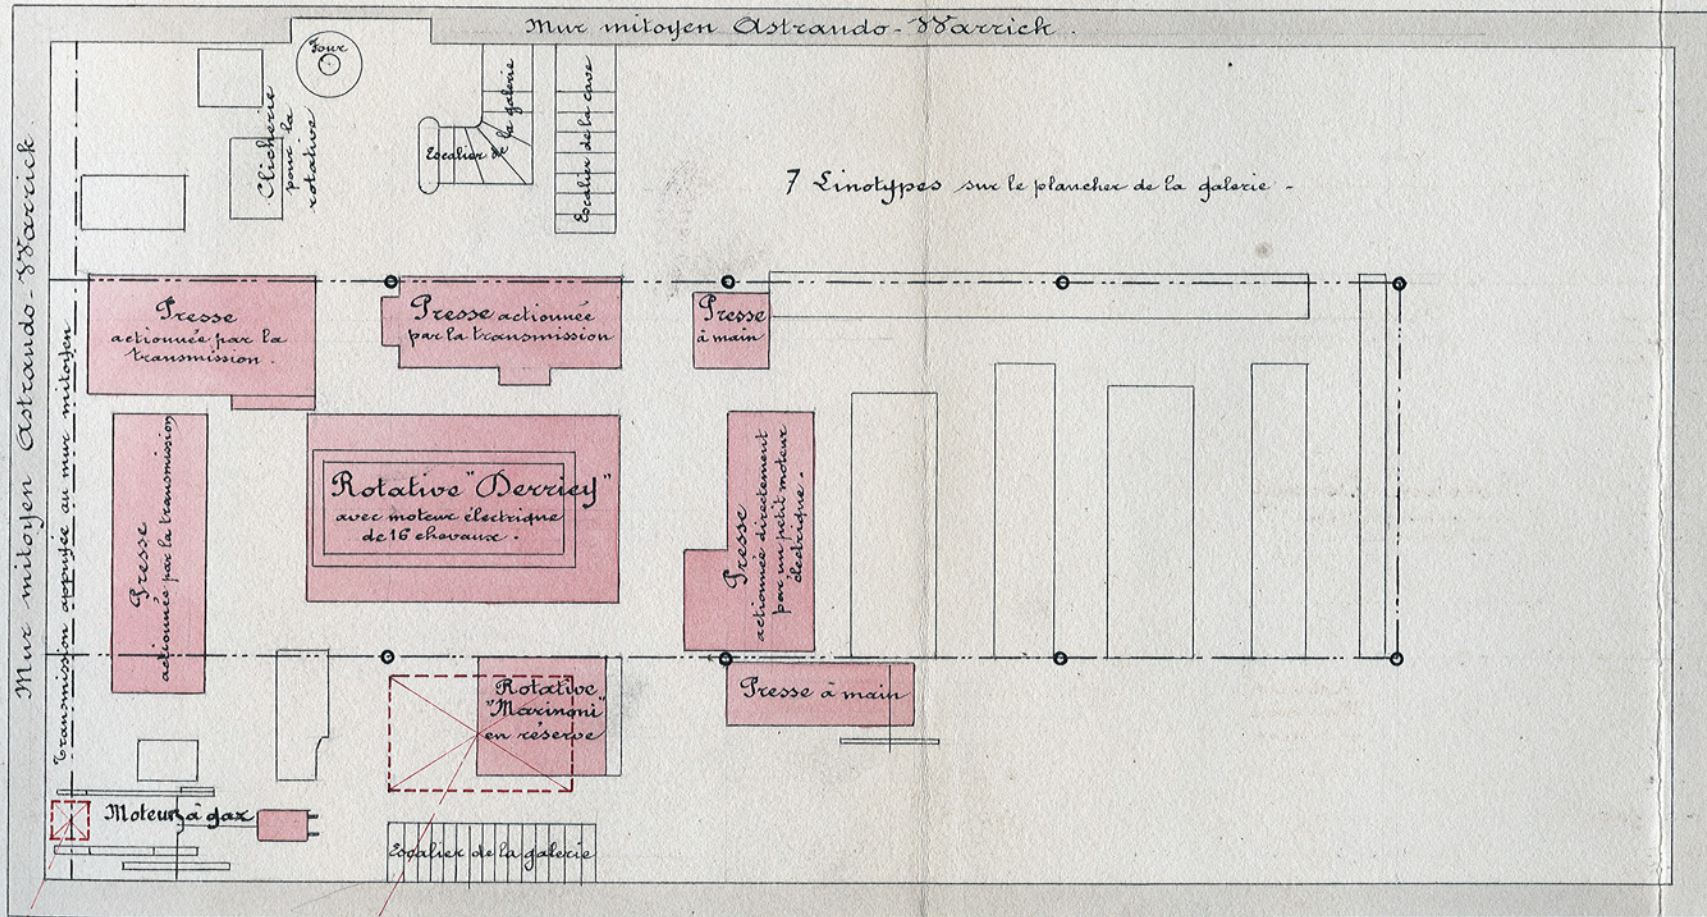 Mur mitoyen Astraudo-Warrick.
Mur mitoyen Astraudo-Warrick
Four
Clicherie
pour la
rotative
Escalier de la galerie
Escalier de la cave
7 Linotypes sur le plancher de la galerie -
Transmission appuyée au mur mitoyen
Presse
actionnée par la
transmission.
Presse actionnée
par la transmission
Presse
à main
Presse
actionnée par la transmission
Rotative "Derriey"
avec moteur électrique
de 16 chevaux.
Presse
actionnée directement
par un petit moteur
électrique.
Rotative
"Marinoni"
en réserve
Presse à main
Moteur à gaz
Escalier de la galerie